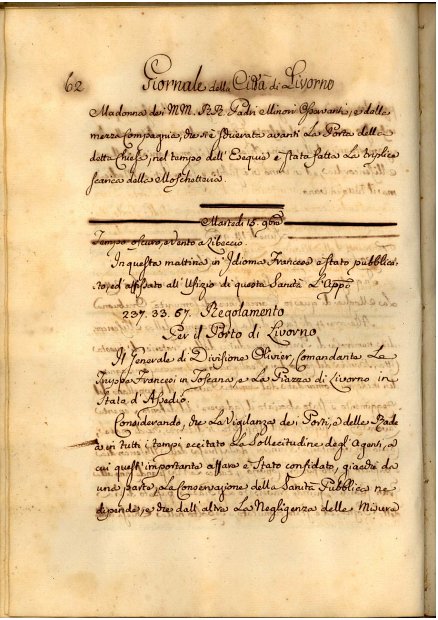 62 Giornale della Città di Livorno
Madonna dei MM. RR. Padri Minori Osservanti, e della
mezza Compagnia, che s'è squerata avanti La Porta della
detta Chiesa, nel tempo dell'Esequie è stata fatta La triplice
scarica della Moschetteria.
Martedì 15. 9bre
Tempo oscuro, e Vento a Libeccio
In questa mattina, in Idioma Francese è stato pubblica-
to, ed affissato all'Ufizio di questa Sanità L'App.e
237. 33. 67. Regolamento
Per il Porto di Livorno
Il Generale di Divisione Olivier, Comandante Le
Truppe Francesi in Toscana, e La Piazza di Livorno in
Stato d'Assedio.
Considerando, che La Vigilanza dei Porti, e delle Rade
à in tutti i tempi eccitato La Sollecitudine degl'Agenti, a
cui quest'importante affare è Stato confidato, giacchè da
una parte, La Conservazione della Sanità Pubblica ne
dipende, e che dall'altra La Negligenza delle Misure